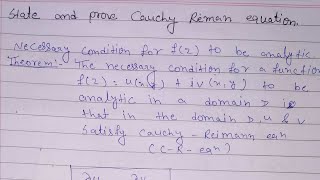 State and prove Cauchy Reiman equation.
Necessary condition for f(z) to be analytic
Theorem:- The necessary condition for a function
f(z) = u(x,y) + iv(x,y) to be
analytic in a domain D is
that in the domain D, u & v
Satisfy Cauchy - Reimann eqn
(C-R-eqn)
∂u ∂v